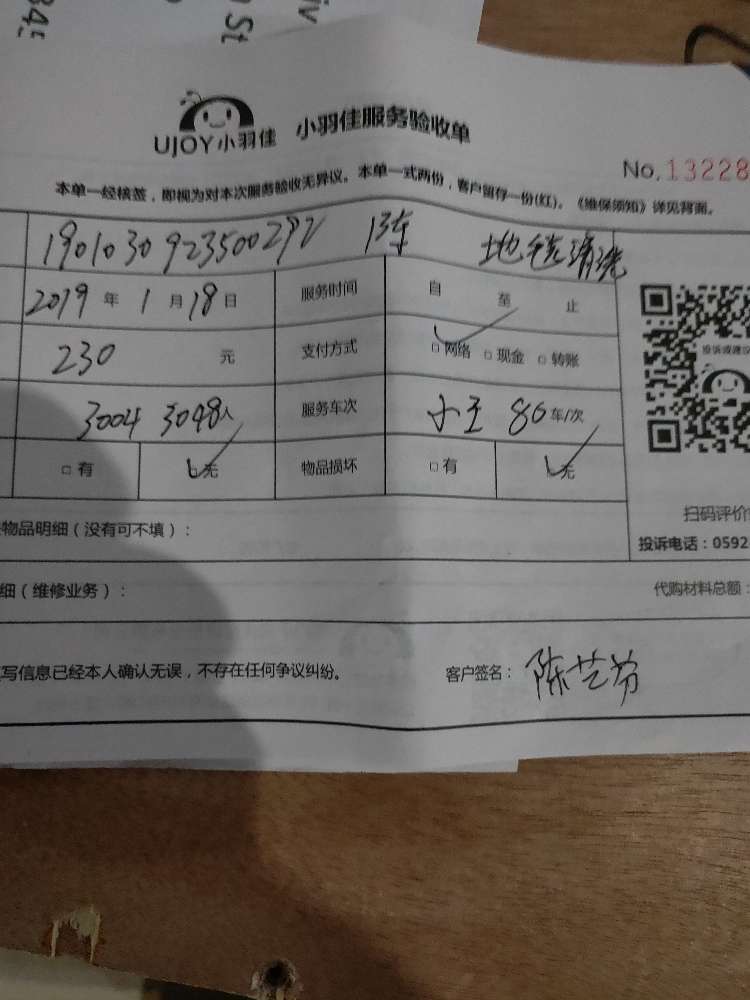 34
St
iv
UJOY小羽佳 小羽佳服务验收单
No.13228
本单一经核签，即视为对本次服务验收无异议。本单一式两份，客户留存一份(红)。《维保须知》详见背面。
190103092350029 地毯清洗
2019年1月18日 服务时间 自 至 止
投诉或建议
230 元 支付方式 □网络 □现金 □转账
3004 3048人 服务车次 小王 86车/次
□有 □无 物品损坏 □有 □无
扫码评价
物品明细（没有可不填）：
投诉电话：0592
细（维修业务）： 代购材料总额：
写信息已经本人确认无误，不存在任何争议纠纷。 客户签名：陈艺芳